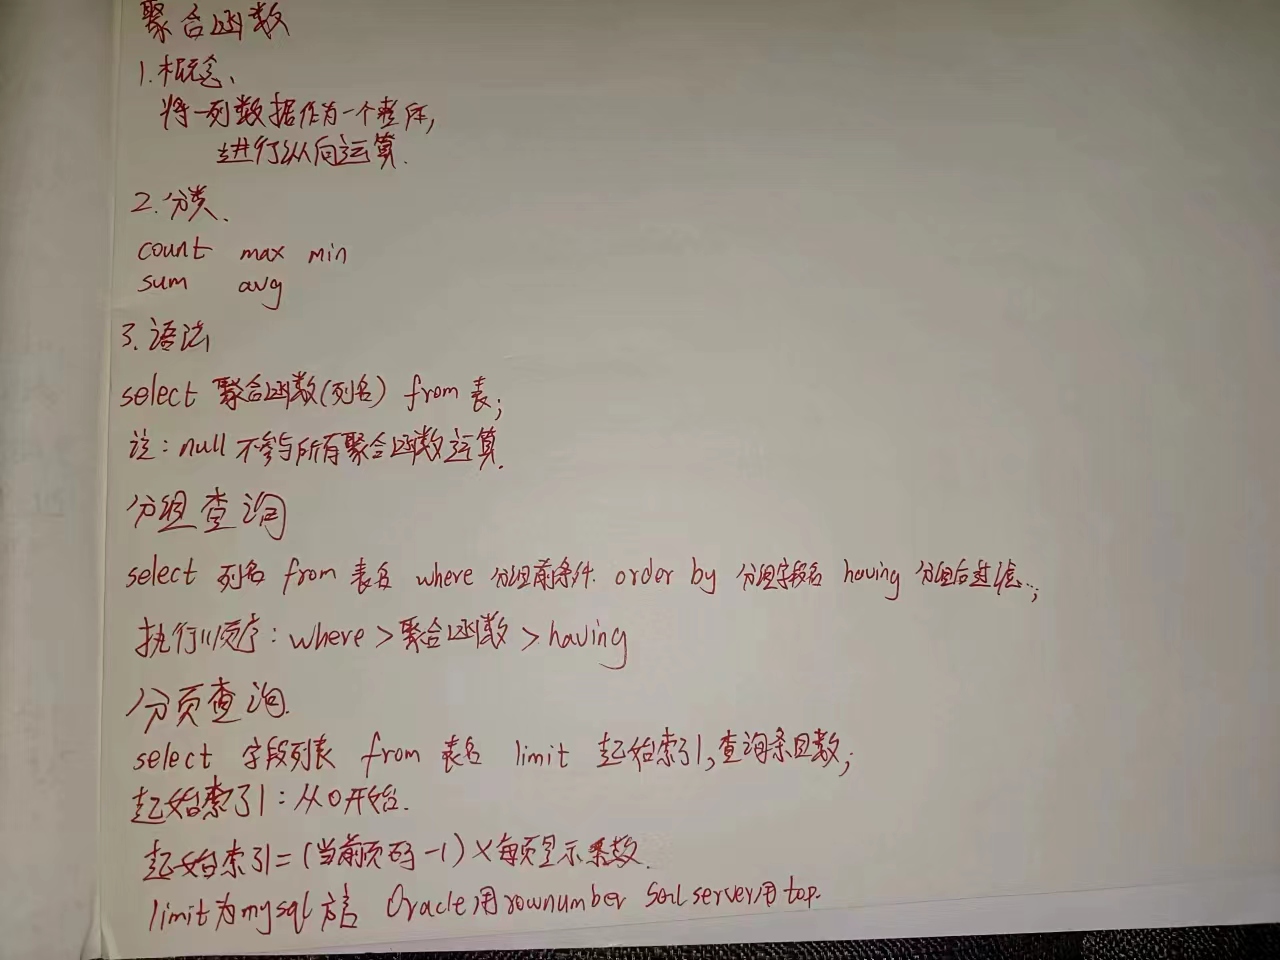 聚合函数
1.概念、
将一列数据作为一个整体,
进行纵向运算.
2.分类、
count max min
sum avg
3.语法
select 聚合函数(列名) from 表;
注:null不参与所有聚合函数运算.
分组查询
select 列名 from 表名 where 分组前条件 order by 分组字段名 having 分组后过滤…;
执行顺序:where>聚合函数>having
分页查询.
select 字段列表 from 表名 limit 起始索引,查询条目数;
起始索引:从0开始.
起始索引=(当前页码-1)×每页显示条数.
limit为mysql方言 Oracle用rownumber Sqlserver用top.